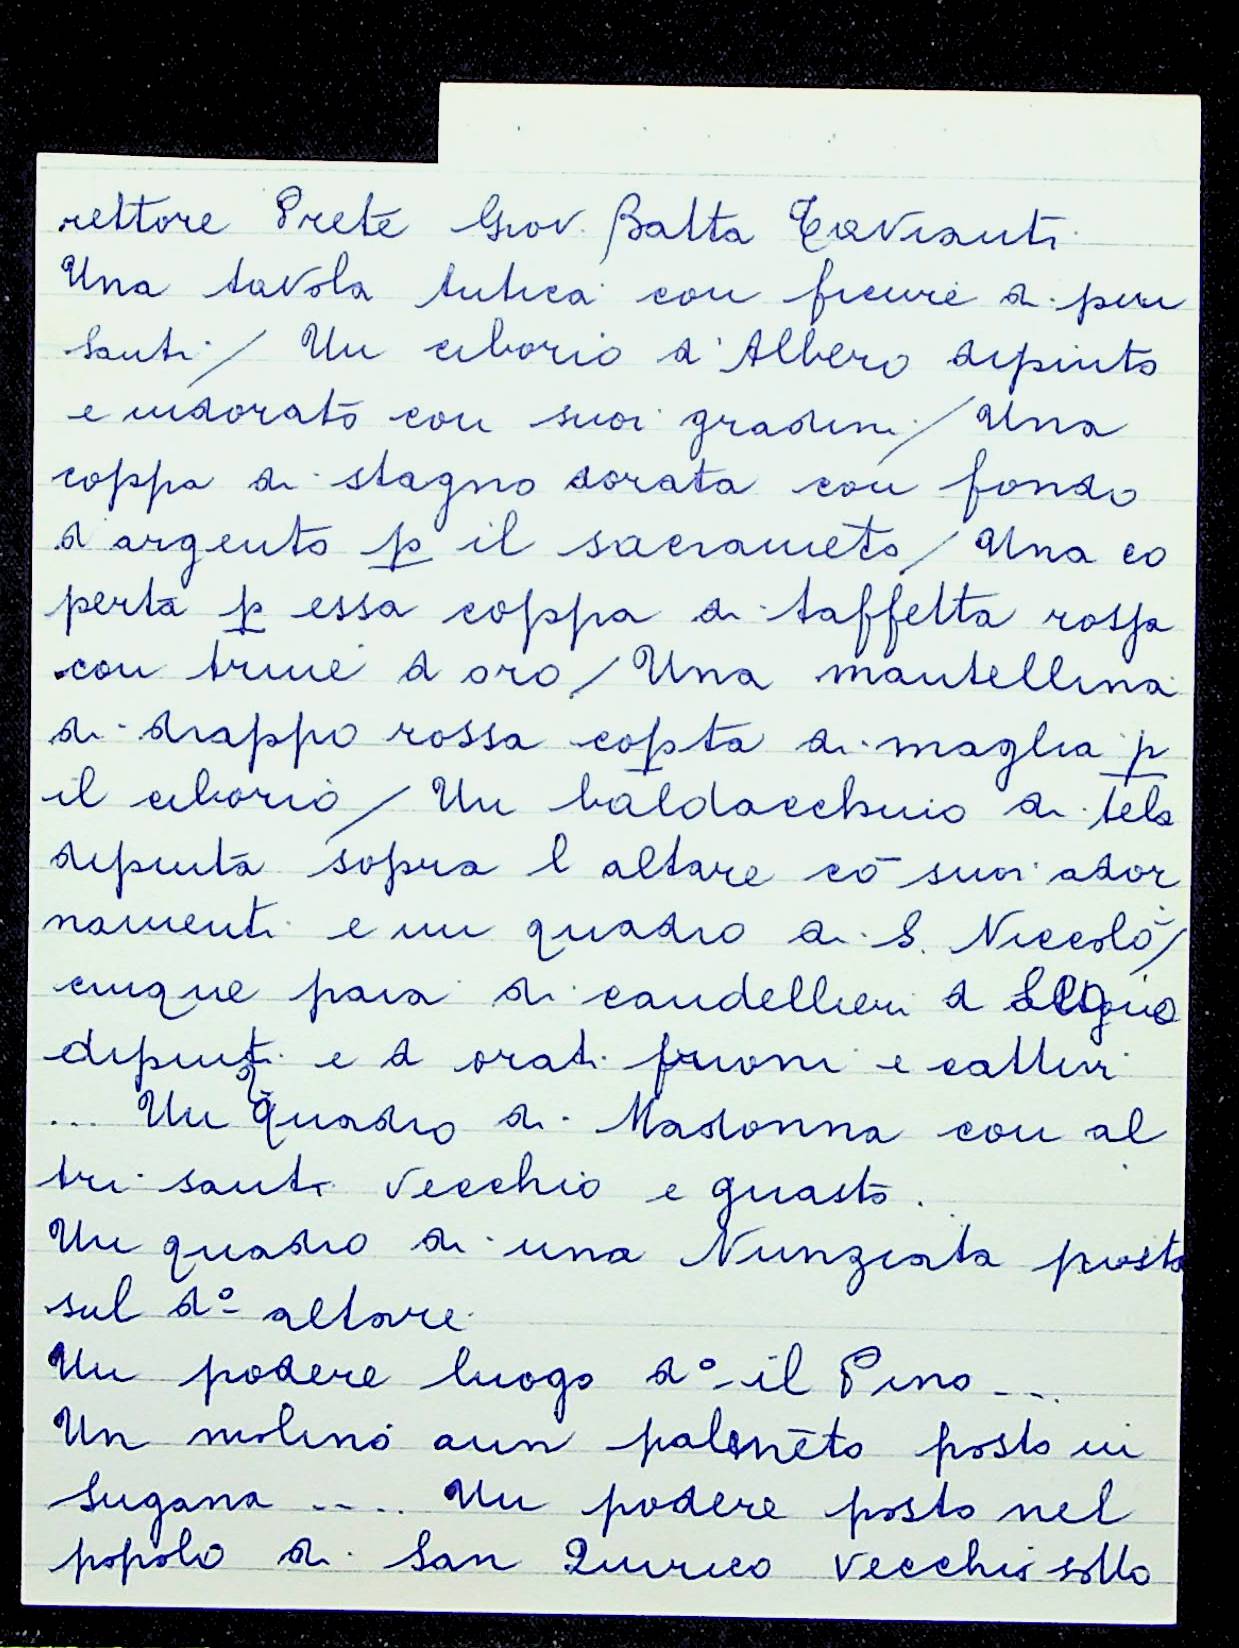 rettore Prete Giov. Batta Taviauti
Una tavola antica con ficure di piu
Santi / Un ciborio d'Albero dipinto
e indorato con suoi gradini / Una
coppa di stagno dorata con fondo
d argento p il sacrameto / Una co
perta p essa coppa di taffetta rossa
con trine d oro / Una mantellina
di drappo rossa copta di maglia p
il ciborio / Un baldacchino di tela
dipinta sopra l altare cō suoi ador
namenti e un quadro di S. Niccolò /
cinque paia di candellieri d Legno
dipinti e d orati e cattivi
... Un Quadro di Madonna con al
tri santi vecchio e guasto.
Un quadro di una Nunziata posto
sul d° altare
Un podere luogo d° il Pino ...
Un molino aun palmēto posto in
Sugana .... Un podere posto nel
popolo di San Quirico vecchio sotto